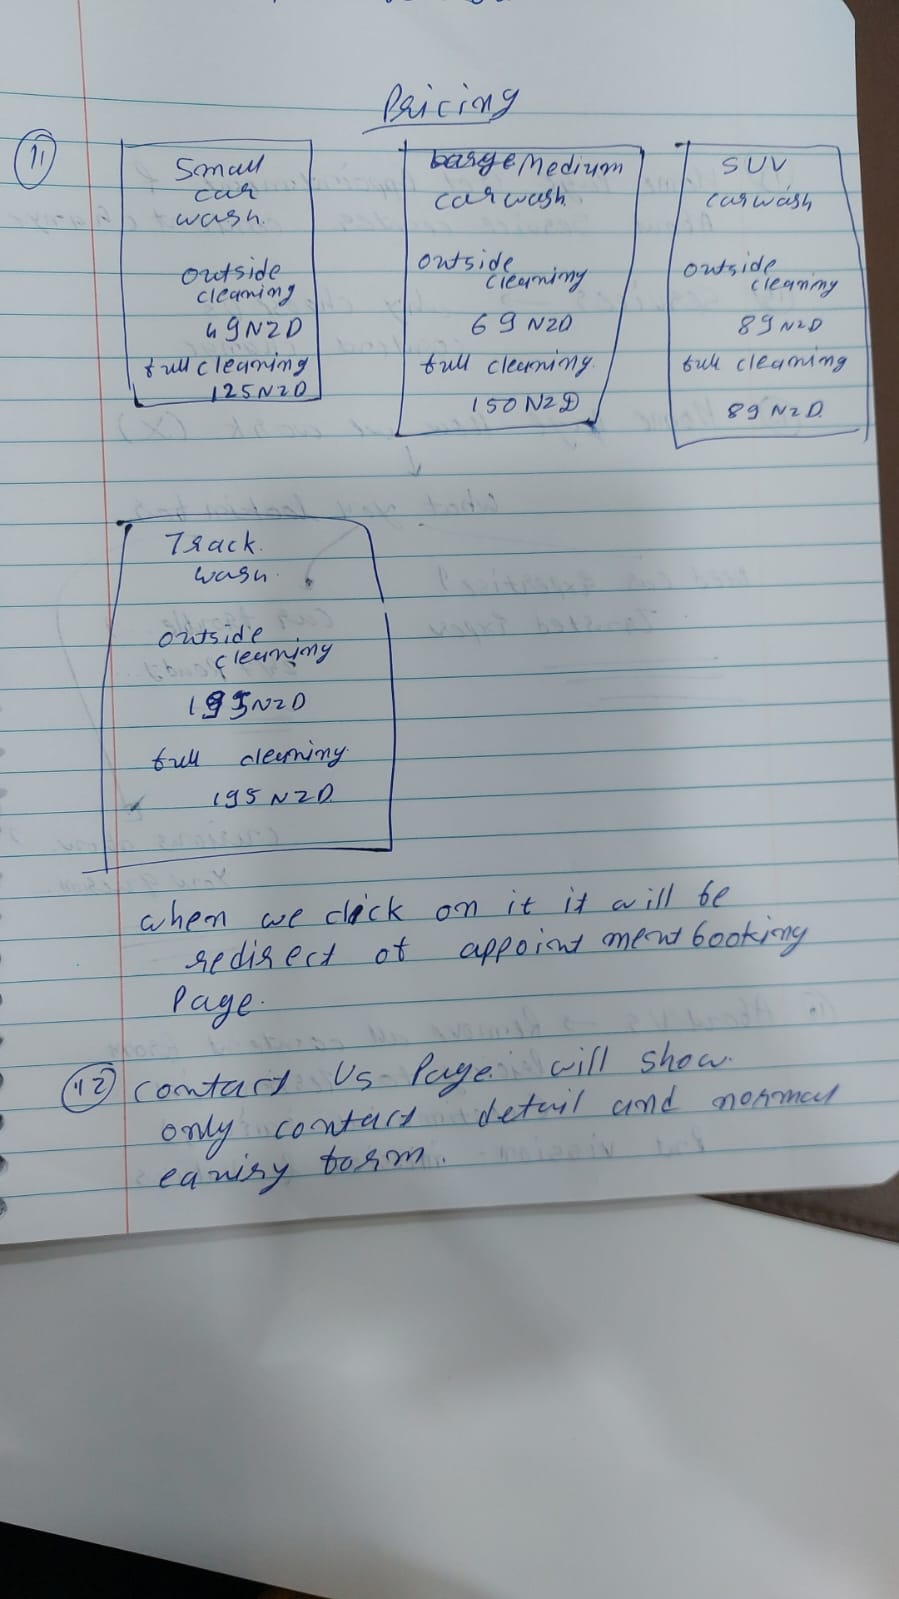 Pricing
11
Small
car
wash.
outside
cleaning
49 NZD
full cleaning
125 NZD
Medium
car wash
outside
cleaning
69 NZD
full cleaning.
150 NZD
SUV
car wash
outside
cleaning
89 NZD
full cleaning
89 NZD.
Track.
wash.
outside
cleaning
NZD
full cleaning.
195 NZD.
when we click on it it will be
redirect of appointment booking
Page.
12 contact Us Page. will show.
only contact detail and normal
form.